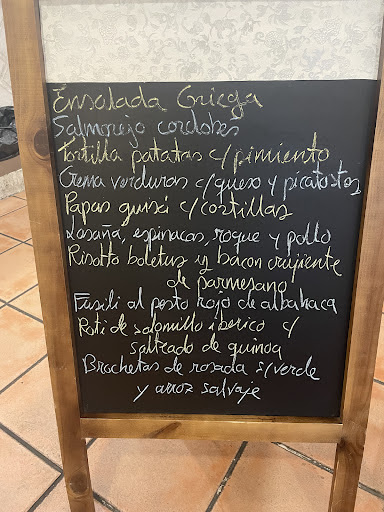 Ensalada Griega
Salmorejo cordobes
Tortilla patatas c/pimiento
Crema verduras c/queso y picatostes
Papas guisá c/costillas
Lasaña, espinacas, roque y pollo
Risotto boletus y bacon crujiente
de parmesano
Fusili al pesto rojo de albahaca
Roti de solomillo iberico c/
salteado de quinoa
Brochetas de rosada s/verde
y arroz salvaje